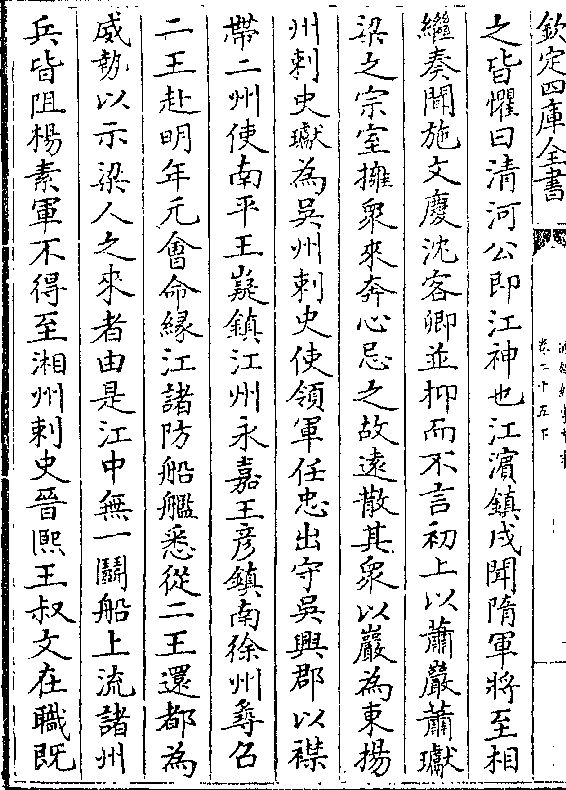 欽定四庫全書
卷二十五下
之皆懼曰清河公即江神也江濱鎮戍聞隋軍將至相
繼奏聞施文慶沈客卿並抑而不言初上以蕭巖蕭瓛
梁之宗室擁衆來奔心忌之故遠散其衆以巖為東揚
州刺史瓛為吳州刺史使領軍任忠出守吳興郡以襟
帶二州使南平王嶷鎮江州永嘉王彥鎮南徐州尋召
二王赴明年元會命緣江諸防船艦悉從二王還都為
威勢以示梁人之來者由是江中無一鬬船上流諸州
兵皆阻楊素軍不得至湘州刺史晉熙王叔文在職既